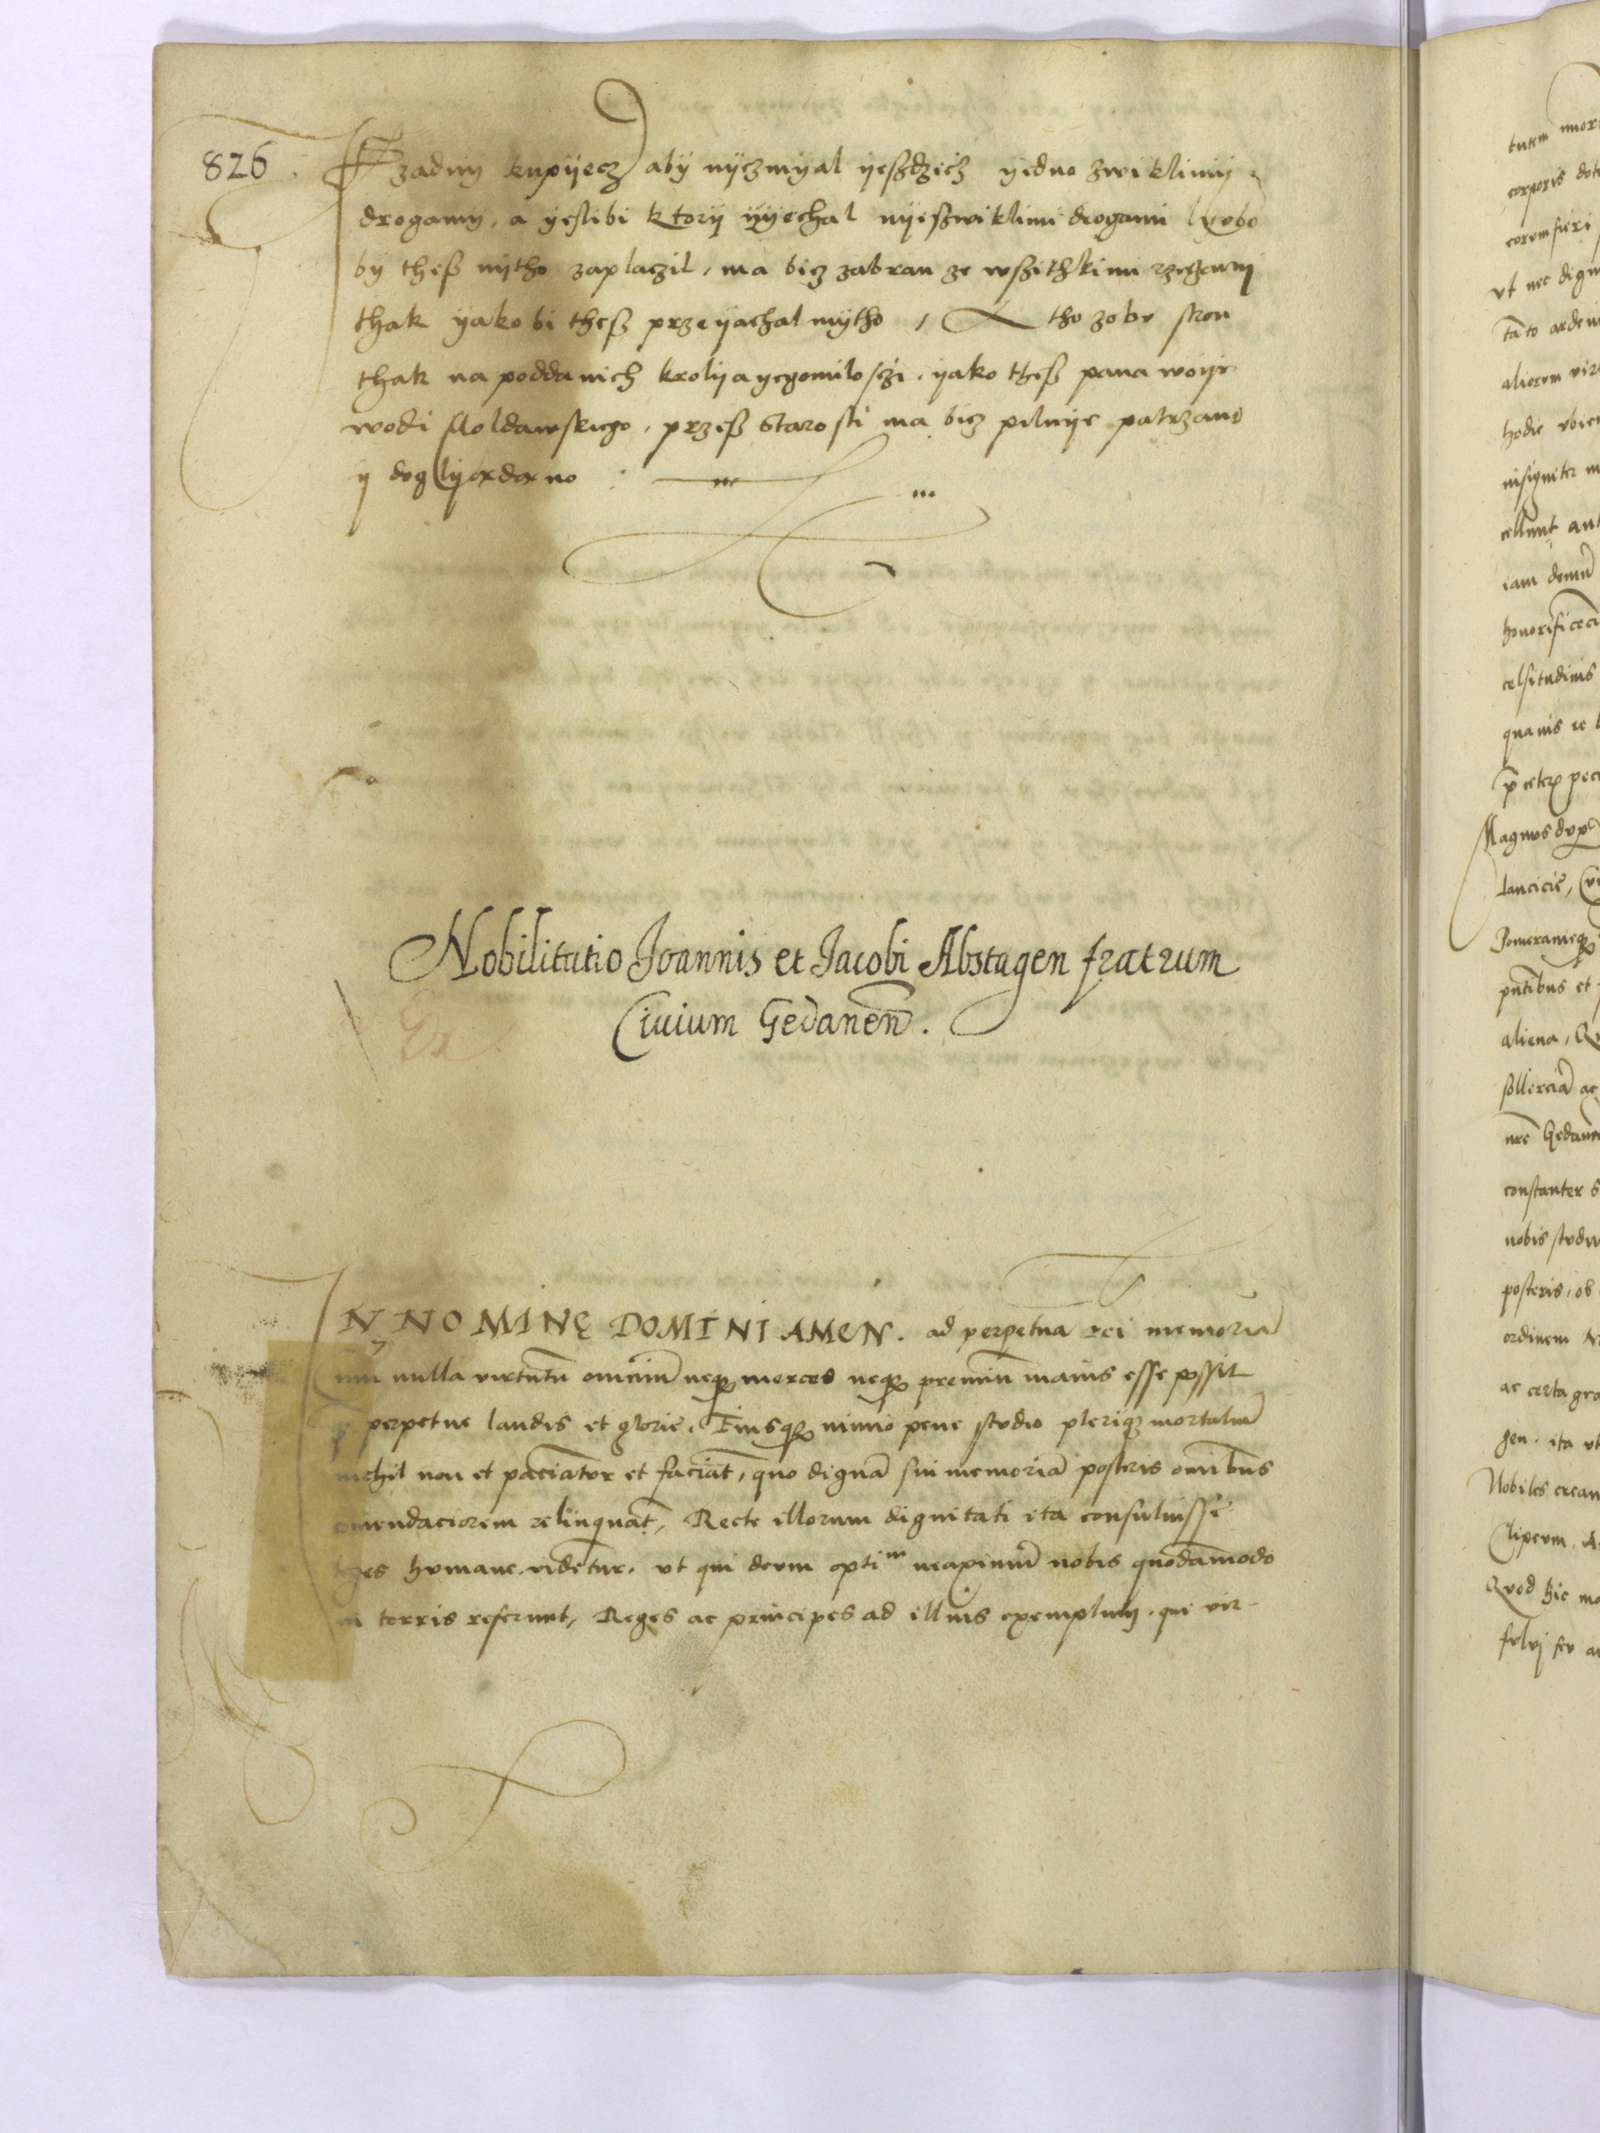 826
zadny kupyecz aby nyezmyal yeszdzicz yedno zwiklimy
drogamy, a yeslibi ktory yyechal nyeszwiklimi drogami lyubo
by thesz mytho zaplaczil, ma bicz zabran ze wszithkimi rzeczami
thak yako bi thesz przeyachal mytho, A tho zobu stron
thak na poddanich krolya yegomilosczi, yako thesz pana woye
wodi Moldawskiego, przesz Starosti ma bicz pilnye patrzano
y doglyadano
Nobilitatio Joannis et Jacobi Abstagen fratrum
Civium Gedanen̄.
IN NOMINE DOMINI AMEN. ad perpetua rei memoriā
nulla virtutū omniū neq₃ merces neq₃ premiū maius esse possit
perpetue laudis et glorie, Eiusq₃ nimio pene studio pleriq₃ mortaliū
nichil non et paciātur et faciāt, quo dignā sui memoriā posteris omībus
comendaciorem relinquāt, Recte illorum dignitati ita consuluisse
leges humane videtur, ut qui deum optiᵐ maximum nobis quodāmodo
in terris referunt, Reges ac principes ad illius exemplum, qui vir-
tutem
corporis
eorum fieri
ut nec
aliorum
hodie
insigniter
cellunt
iam demū
celsitudinis
quamis
Magnus dux
lancicie,
Pomeranieq₃
pntibus et
aliena,
sollerciā ac
nre Gedanen
constanter
nobis studu
posteris, ob
ordinem
ac certa
gen. ita ut
Nobiles crean
Clipeum
Quod hic
fului seu